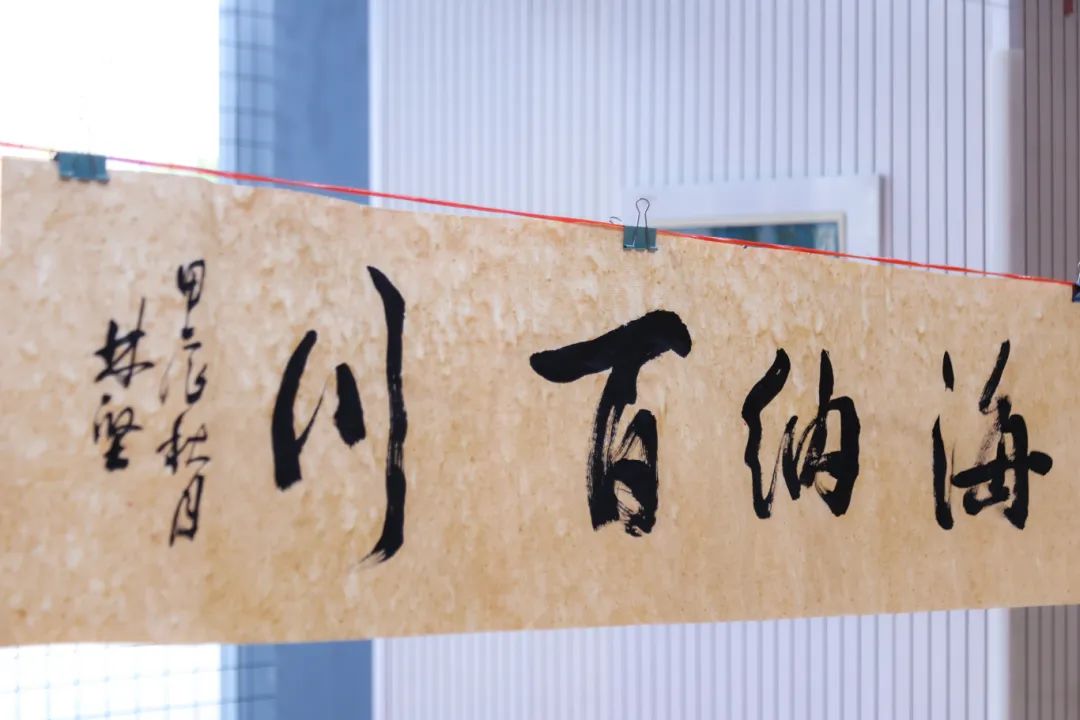 海纳百川
甲辰秋月
林坚